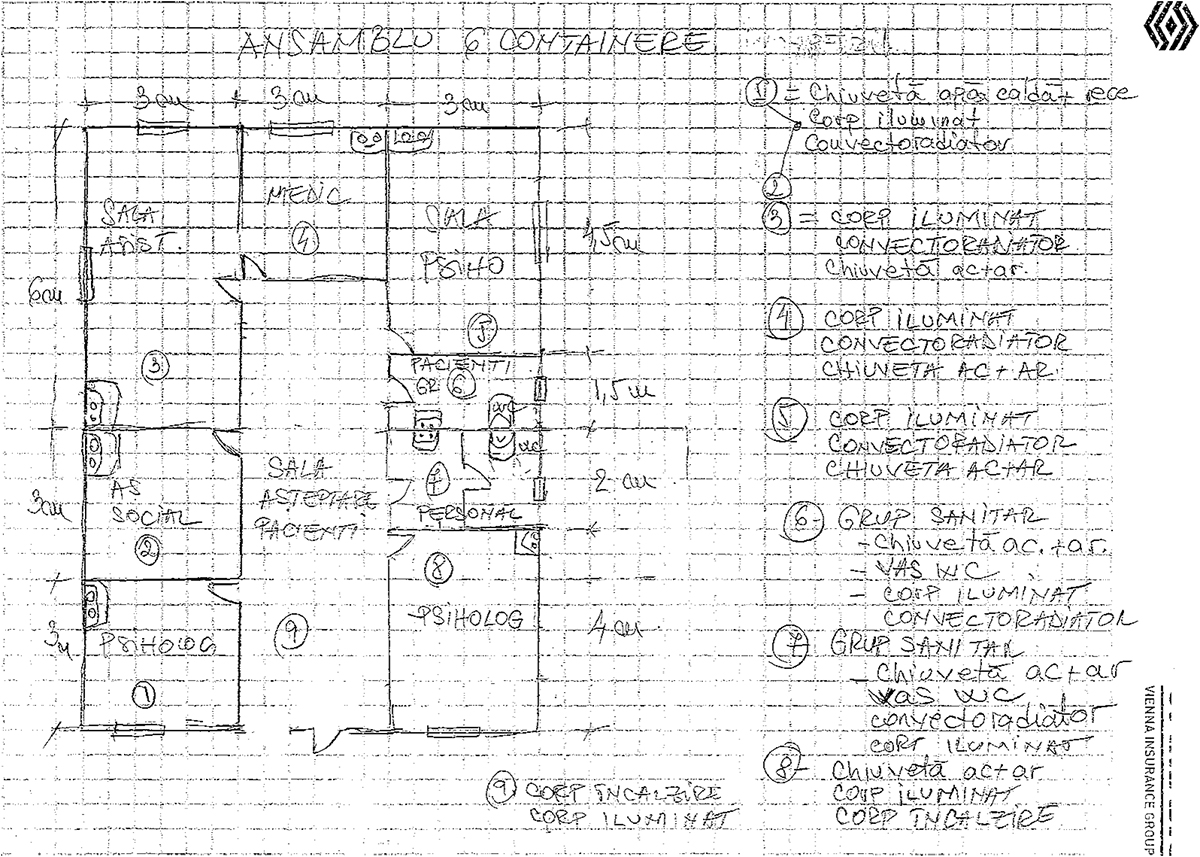 ANSAMBLU 6 CONTAINERE
3 m
3 m
3 m
SALA
ASIST.
3
MEDIC
4
SALA
PSIHO
5
4,5 m
6 m
PACIENTI
GR 6
WC
1,5 m
WC
7
PERSONAL
2 m
SALA
ASTEPTARE
PACIENTI
AS
SOCIAL
2
3 m
8
PSIHOLOG
4 m
9
PSIHOLOG
1
3 m
1 = Chiuvetă apă caldă + rece
Corp iluminat
Convectoradiator
2
3 = CORP ILUMINAT
CONVECTORADIATOR
Chiuvetă ac+ar.
4 CORP ILUMINAT
CONVECTORADIATOR
CHIUVETA AC+AR
5 CORP ILUMINAT
CONVECTORADIATOR
CHIUVETA AC+AR
6 - GRUP SANITAR
- Chiuvetă ac.+ar.
- VAS WC
- CORP ILUMINAT
CONVECTORADIATOR
7 GRUP SANITAR
- Chiuvetă ac+ar
VAS WC
convectoradiator
CORP ILUMINAT
8 - Chiuvetă ac+ar
CORP ILUMINAT
CORP ÎNCALZIRE
9 CORP ÎNCALZIRE
CORP ILUMINAT
VIENNA INSURANCE GROUP